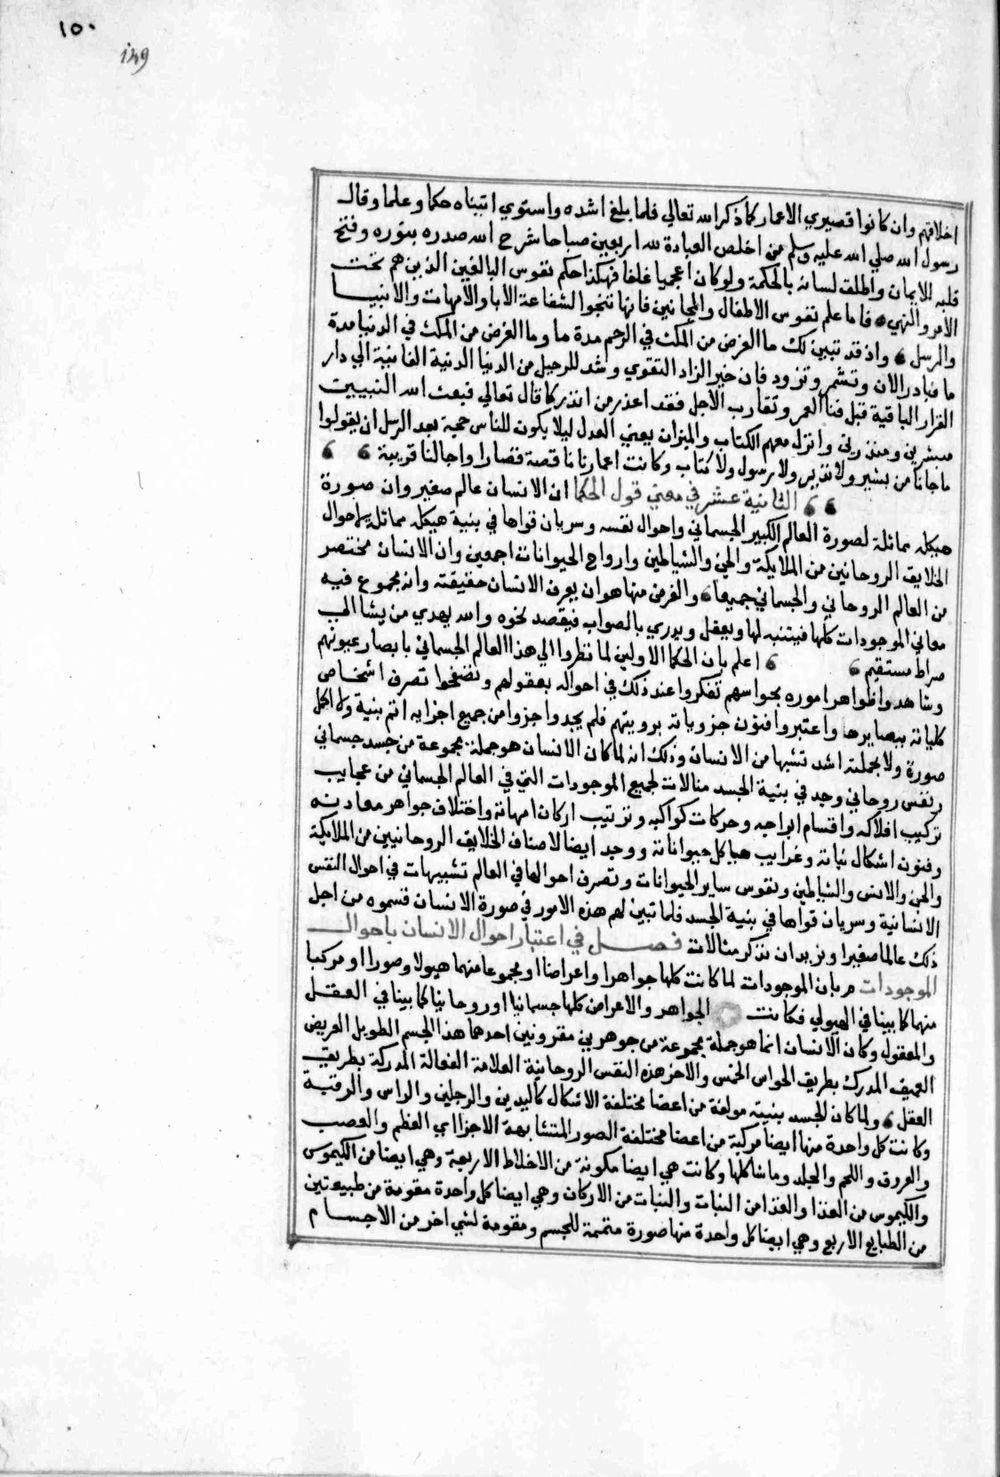 ١٥٠
149
اخلاقهم وان كانوا قصيري الاعمار كما ذكر الله تعالي فلما بلغ اشده واستوي اتيناه حكما وعلما وقال
رسول الله صلي الله عليه وسلم من اخلص العبادة لله اربعين صباحا شرح الله صدره بنوره وفتح
قلبه للايمان واطلق لسانه بالحكمة ولو كان اعجميا غلفا فهكذا حكم نفوس البالغين الذين هم تحت
الامر والنهي فاما علم نفوس الاطفال والمجانين فانها تنجوا لشفاعة الابا والامهات والانبيا
والرسل واذ قد تبين لك ما الغرض من المكث في الرحم مدة ما وما الغرض من المكث في الدنيا مدة
ما فبادر الان وتشمر وتزود فان خير الزاد التقوي وشد للرحيل من الدنيا الدنية الفانية الي دار
القرار الباقية قبل فنا العمر وتقارب الاجل فقد اعذر من انذر كما قال تعالي فبعث الله النبييت
مبشرين ومنذرين وانزل معهم الكتاب والميزان يعني العدل ليلا يكون للناس حجة بعد الرسل ان يقولوا
ما جانا من بشير ولا نذير ولا رسول ولا كتاب وكانت اعمارنا ناقصة قصارا واجالنا قريبة
الثانية عشر في معني قول الحكما ان الانسان عالم صغير وان صورة
هيكله مماثلة لصورة العالم الكبير الجسماني واحوال نفسه وسريان قواها في بنية هيكله مماثلة لاحوال
الخلايق الروحانيين من الملايكة والجن والشياطين وارواح الحيوانات اجمعين وان الانسان مختصر
من العالم الروحاني والجسماني جميعا والغرض منها هو ان يعرف الانسان حقيقته وانه مجموع فيه
معاني الموجودات كلها فيتنبه لها ويعقل ويدري بالصواب فيقصد نحوه والله يهدي من يشا الي
صراط مستقيم اعلم بان الحكما الاولين لما نظروا الي هذا العالم الجسماني بابصار عيونهم
وشاهدوا ظواهر اموره بحواسهم تفكروا عند ذلك في احواله بعقولهم وتصفحوا تصرف اشخاص
كلياته ببصايرها واعتبروا فنون جزوياته برويتهم فلم يجدوا جزوا من جميع اجزايه اتم بنية ولا اكمل
صورة ولا بجملته اشد تشبها من الانسان وذلك انه لما كان الانسان هو جملة مجموعة من جسد جسماني
ونفس روحاني وجد في بنية الجسد مثالات لجميع الموجودات التي في العالم الجسماني من عجايب
تركيب افلاكه واقسام ابراجه وحركات كواكبه وترتيب اركان امهاته واختلاف جواهر معادنه
وفنون اشكال نباته وغرايب هياكل حيواناته ووجد ايضا لاصناف الخلايق الروحانيين من الملايكة
والجن والانس والشياطين ونفوس ساير الحيوانات وتصرف احوالها في العالم تشبيهات في احوال النفس
الانسانية وسريان قواها في بنية الجسد فلما تبين لهم هذه الامور في صورة الانسان قسموه من اجل
ذلك عالما صغيرا ونريد ان نذكر مثالات فصل في اعتبار احوال الانسان باحوال
الموجودات بان الموجودات لما كانت كلها جواهرا واعراضا او مجموعا منهما هيولا وصورا او مركبا
منها كما بينا في الهيولي فكانت الجواهر والاعراض كلها جسمانيا او روحانيا كما بينا في العقل
والمعقول وكان الانسان انما هو جملة مجموعة من جوهرين مقترونين احدهما هذا الجسم الطويل العريض
العميق المدرك بطريق الحواس الخمس والاخر هذه النفس الروحانية العلامة الفعالة المدركة بطريق
العقل ولما كان للجسد بنيته مولفة من اعضا مختلفة الاشكال كاليدين والرجلين والراس والرقبة
وكانت كل واحدة منها ايضا مركبة من اعضا مختلفة الصور المتشابهة الاجزا اي العظم والعصب
والعروق واللحم والجلد وما شاكلها وكانت هي ايضا مكونة من الاخلاط الاربعة وهي ايضا من الكيموس
والكيموس من الغذا والغذا من النبات والنبات من الاركان وهي ايضا كل واحدة مقومة من طبيعتين
من الطبايع الاربع وهي ايضا كل واحدة منها صورة متممة للجسم ومقومة لشي اخر من الاجسام